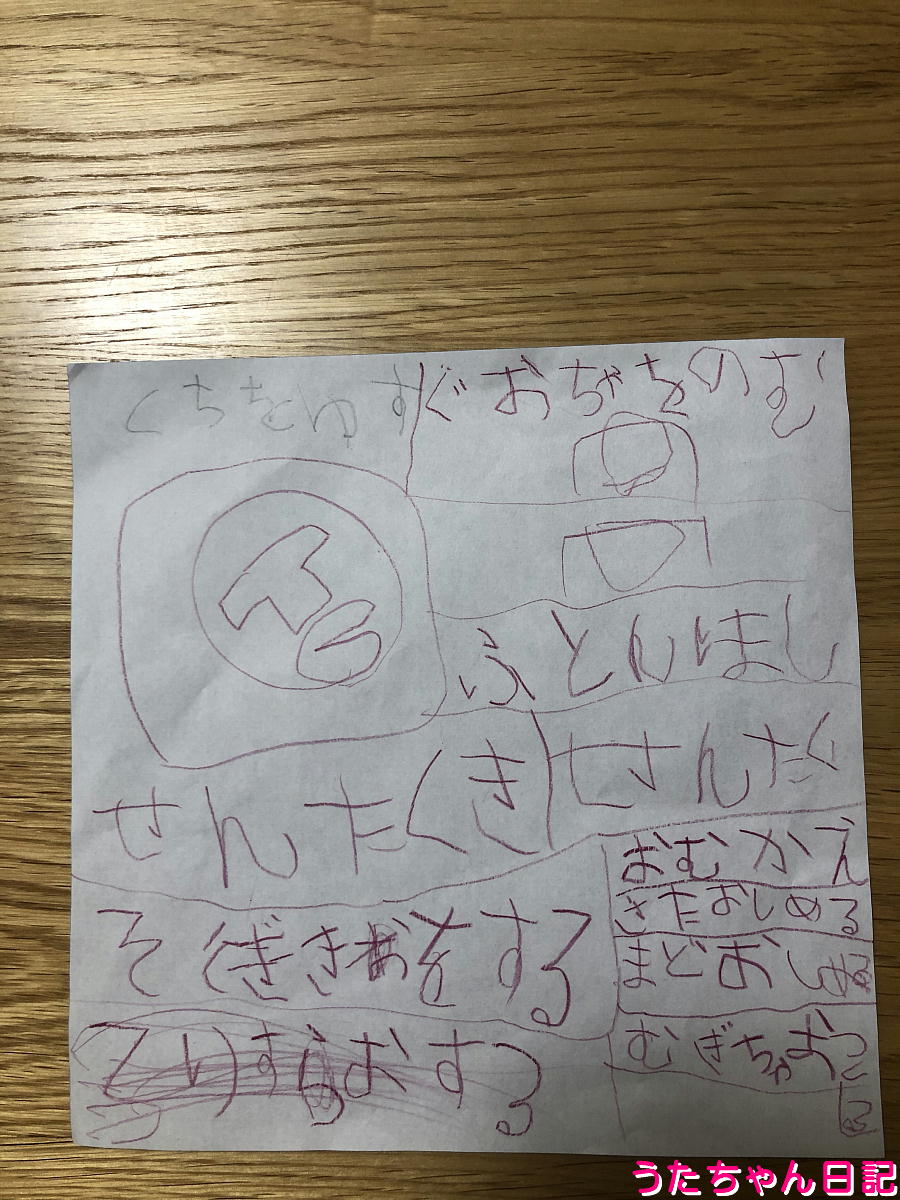 くちをゆすぐ
おぢゃをのむ
ふとんほし
せんたくき
せんたく
おむかえ
きたおしめる
まどおしめる
そくぎきおをする
むぎちゃおつ
くる
おする
うたちゃん日記